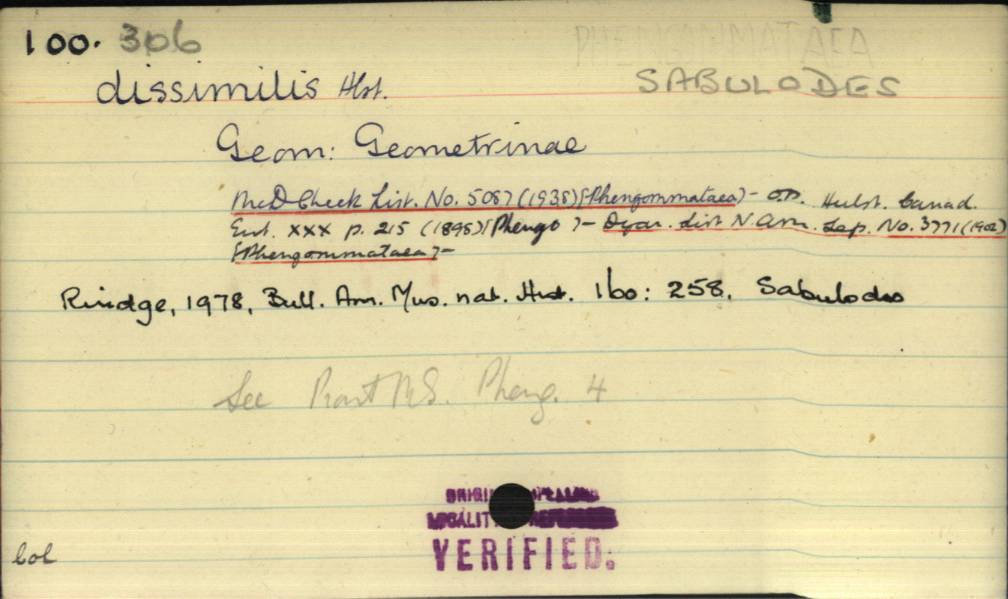 100. 306
PHENGOMMATAEA
dissimilis Hlst.
SABULODES
Geom: Geometrinae
McD Check List. No. 5087 (1938) [Phengommataea) - O.D. Hulst. Canad.
Ent. XXX p. 215 (1898) [Phengo ) - Dyar. List N. Am. Lep. No. 3771 (1902)
[Phengommataea] -
Rindge, 1978, Bull. Am. Mus. nat. Hist. 160: 258. Sabulodes
See Prout MS. Pheng. 4
VERIFIED.